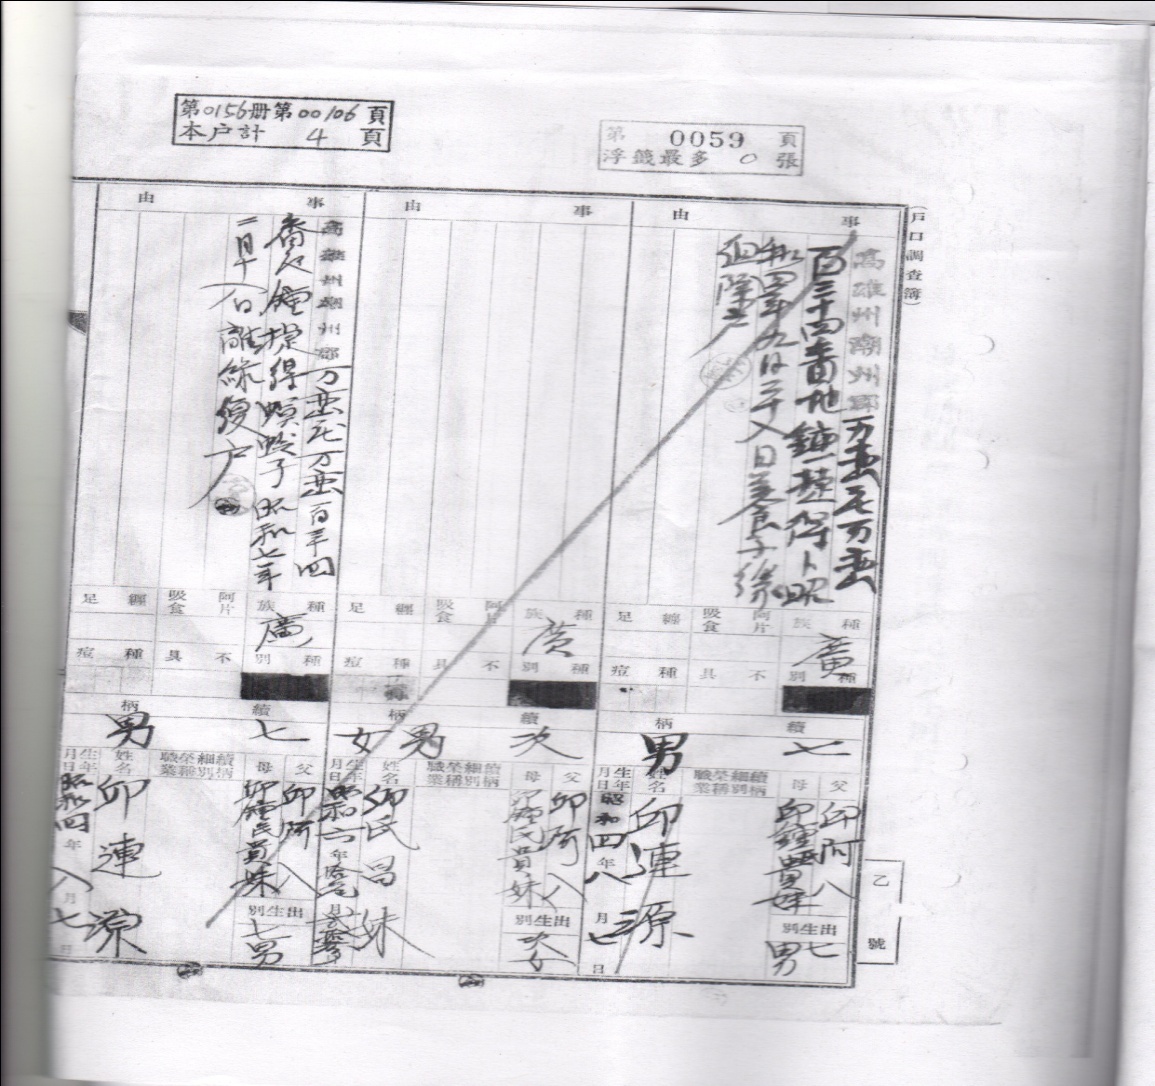 第0156册第00106頁
本户計 4 頁
第 0059 頁
浮籤最多 0 張
(戶口調查簿)
乙號
事由
高雄州潮州郡万峦庄万峦
百三十四番地鍾提得ト昭
和四年九月二十八日養子緣
組除户
種族 廣
阿片吸食
纏足
種別
不具
種痘
續柄 七男
父 邱阿八
母 邱鍾氏貴妹
出生別 七男
續柄細別榮稱職業
姓名 邱連源
生年月日 昭和四年八月七日
事由
種族 廣
阿片吸食
纏足
種別
不具
種痘
續柄 次男 女
父 邱阿八
母 邱鍾氏貴妹
出生別 次女
續柄細別榮稱職業
姓名 邱氏昌妹
生年月日 昭和六年 月 日
事由
高雄州潮州郡万峦庄万峦百三十四
番地鍾提得螟蛉子昭和七年
二月十八日離緣復户
種族 廣
阿片吸食
纏足
種別
不具
種痘
續柄 七男
父 邱阿八
母 邱鍾氏貴妹
出生別 七男
續柄細別榮稱職業
姓名 邱連源
生年月日 昭和四年八月七日